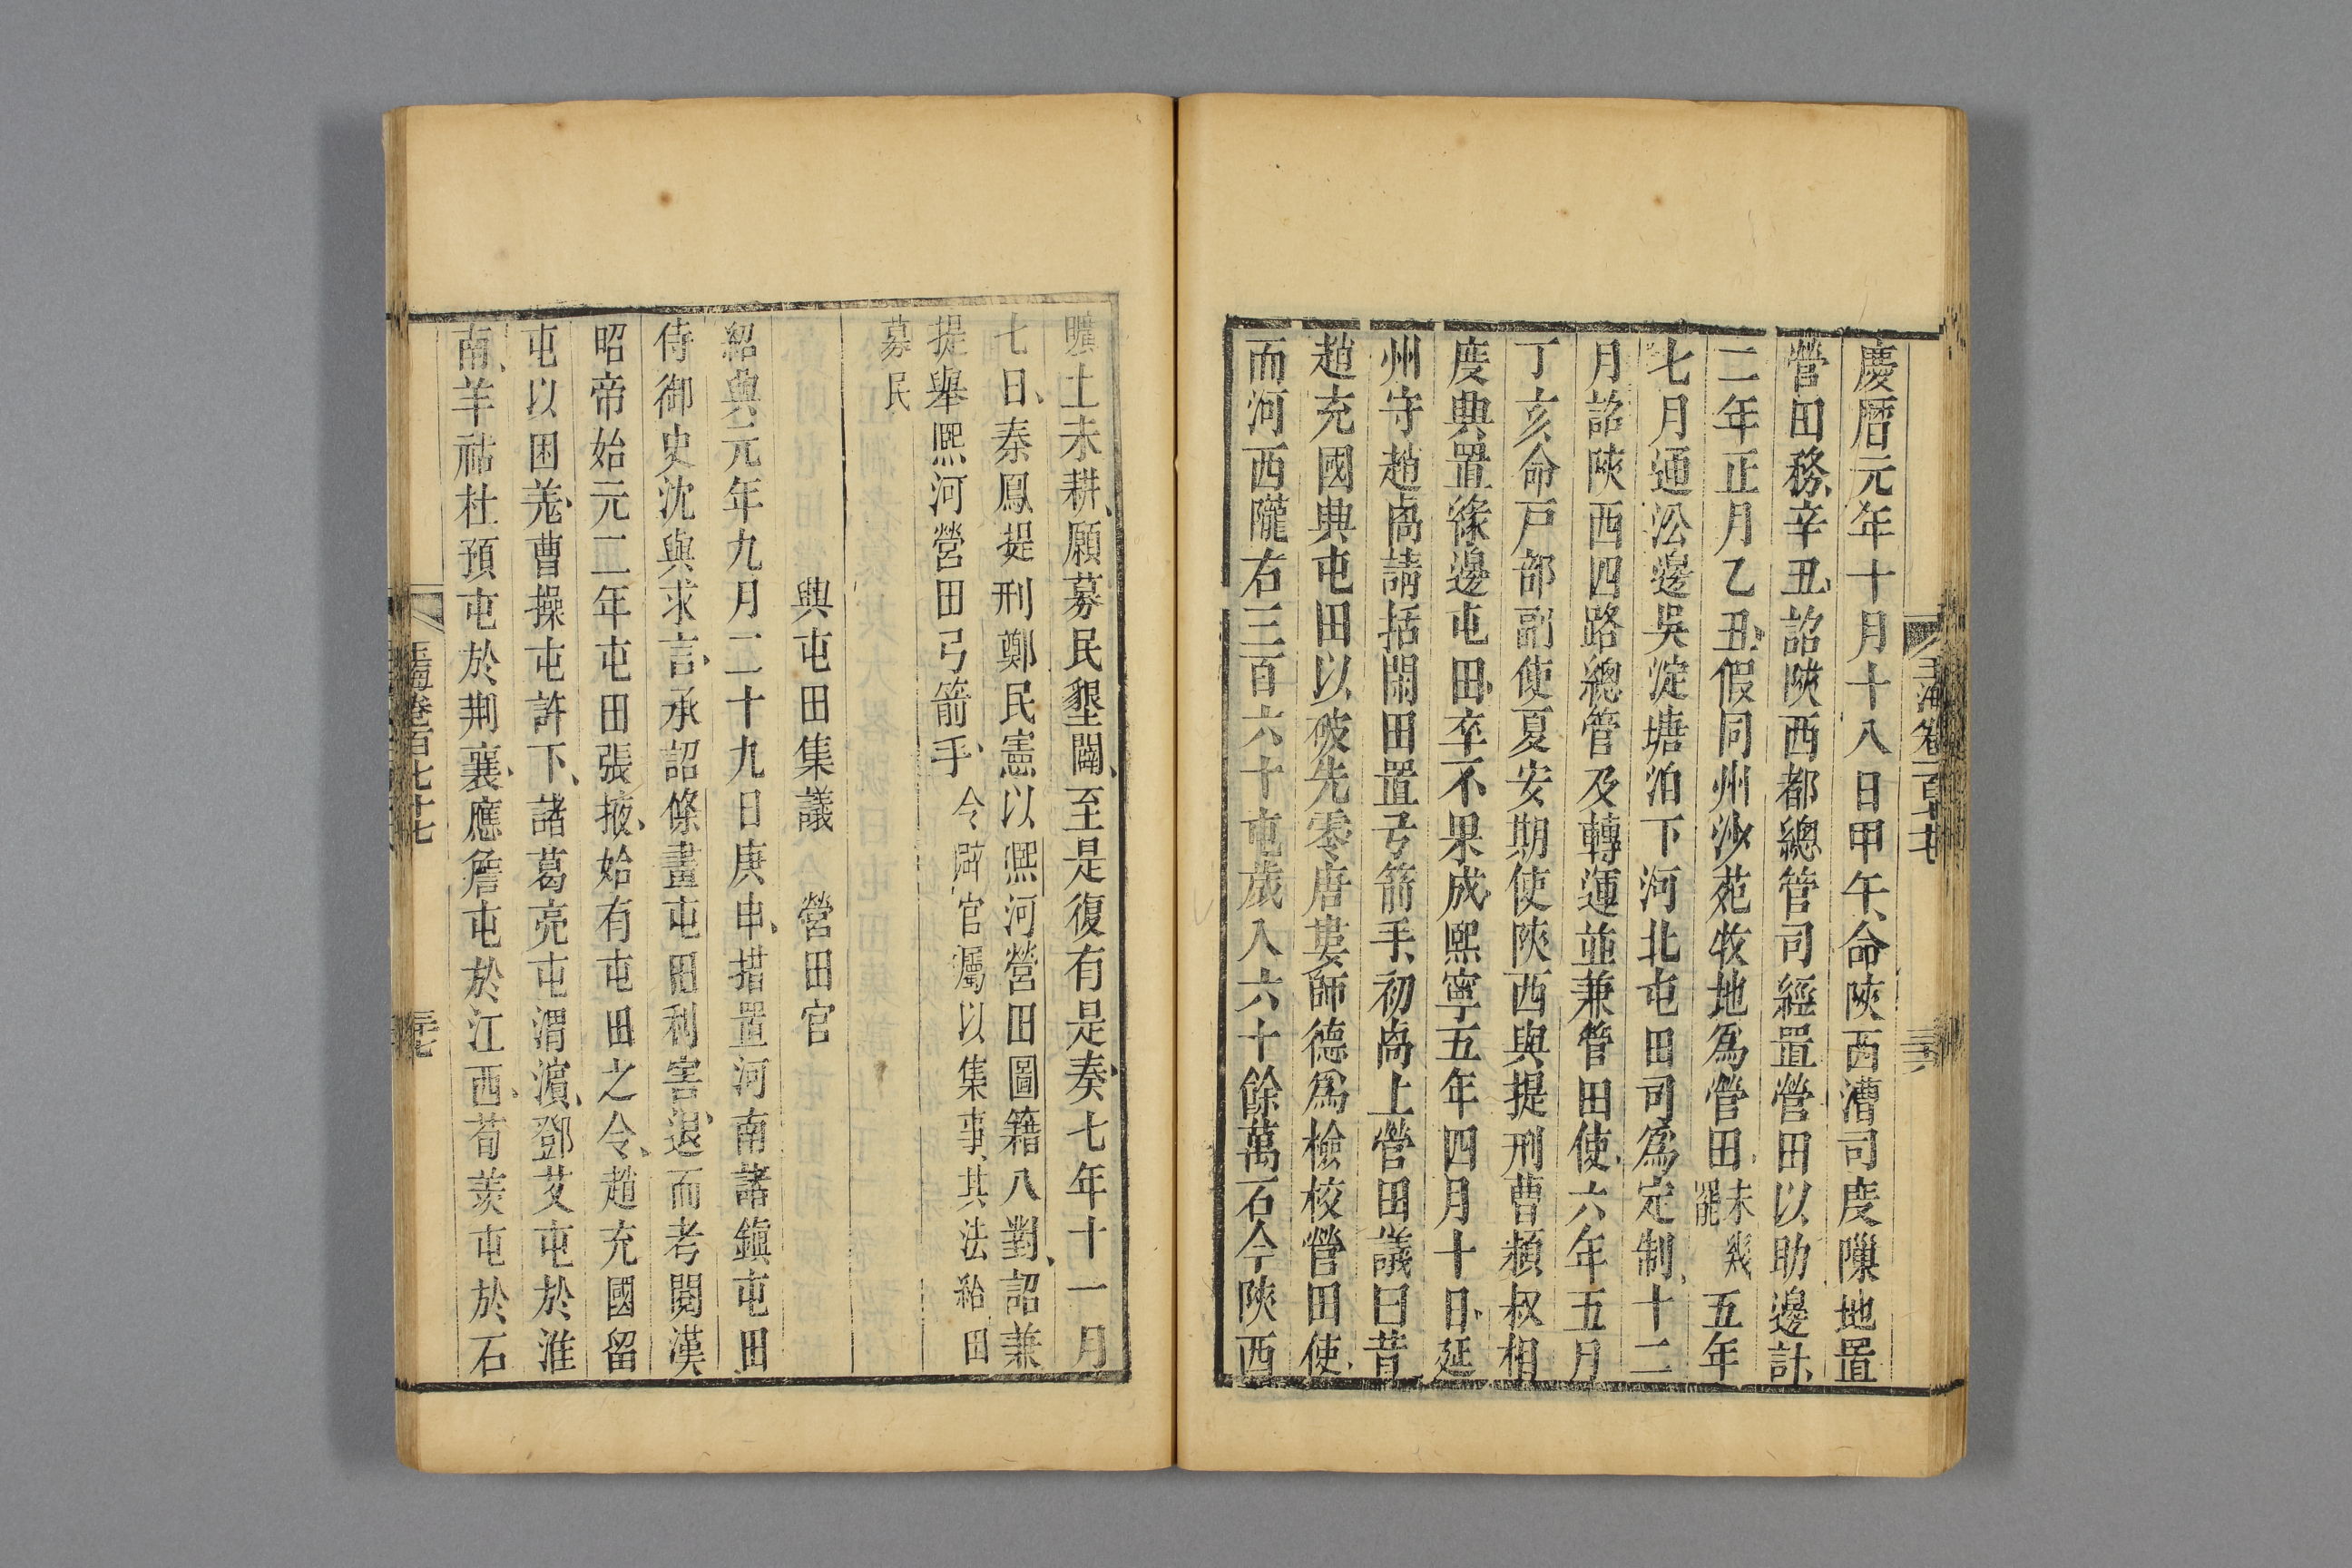 慶曆元年十月十八日甲午命陝西漕司度隟地置
營田務辛丑詔陝西都總管司經置營田以助邊計
二年正月乙丑假同州沙苑牧地爲營田未幾罷五年
七月通㳂邊吳淀塘泊下河北屯田司爲定制十二
月詔陝西四路總管及轉運並兼管田使六年五月
丁亥命戸部副使夏安期使陝西與提刑曹頴叔相
度興置緣邊屯田卒不果成熙寧五年四月十日延
州守趙卨請括閑田置弓箭手初卨上營田議曰昔
趙充國興屯田以破先零唐婁師德爲檢校營田使
而河西隴右三百六十屯歲入六十餘萬石今陝西
曠土未耕願募民墾闢至是復有是奏七年十一月
七日秦鳳提刑鄭民憲以熙河營田圖籍八對詔兼
提舉熙河營田弓箭手令辟官屬以集事其法給田
募民
興屯田集議 營田官
紹興元年九月二十九日庚申措置河南諸鎭屯田
侍御史沈與求言承詔條畫屯田利害退而考閱漢
昭帝始元二年屯田張掖始有屯田之令趙充國留
屯以困羗曹操屯許下諸葛亮屯渭濵鄧艾屯於淮
南羊祜杜預屯於荆襄應詹屯於江西荀羨屯於石
玉海卷一百七十七
三十六
玉海卷一百七十七
三十七